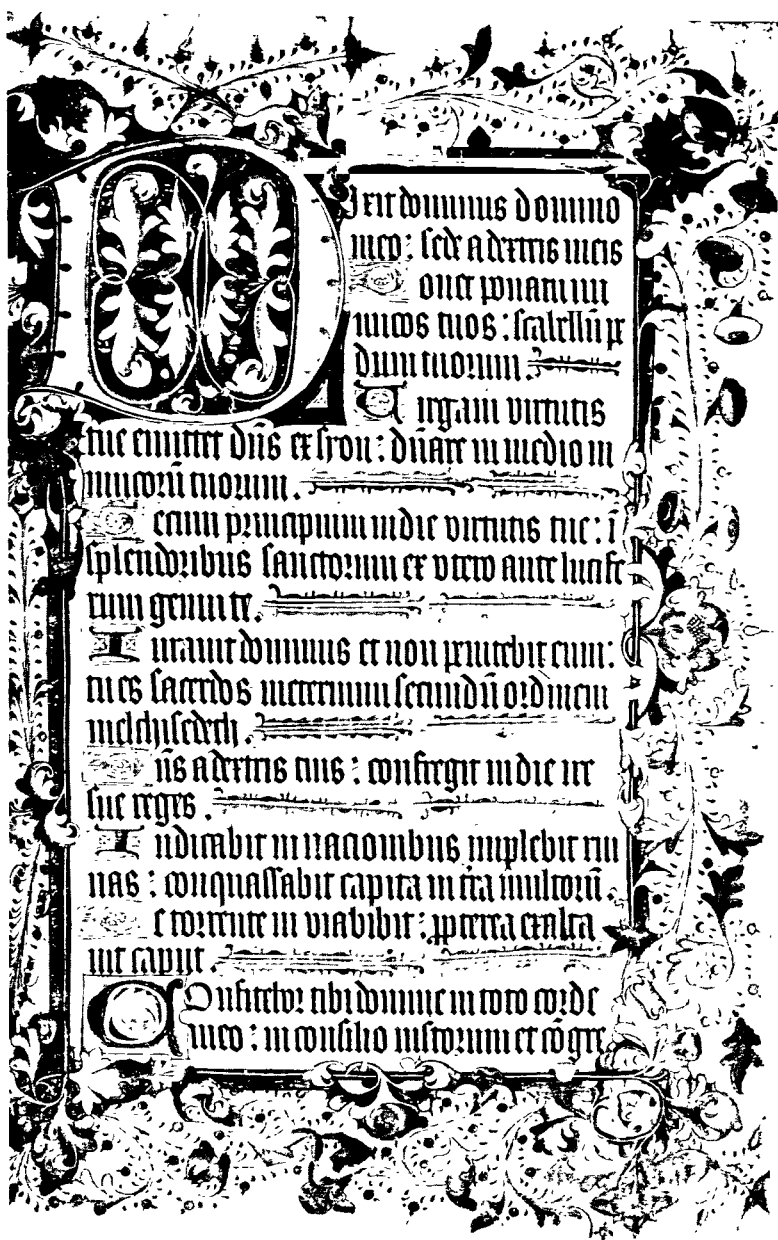 Dixit dominus domino
meo: sede a dextris meis
Donec ponam ini
micos tuos: scabellū pe
dum tuorum.
Virgam virtutis
tue emittet dn̄s ex syon: dn̄are in medio in
imicorū tuorum.
Tecum principium in die virtutis tue: ī
splendoribus sanctorum ex vtero ante lucife
rum genui te.
Iurauit dominus et non penitebit eum:
tu es sacerdos in eternum secundū ordinem
melchisedech.
Dn̄s a dextris tuis: confregit in die ire
sue reges.
Iudicabit in nacionibus implebit rui
nas: conquassabit capita in t̄ra multorū.
De torrente in via bibit: ꝓpterea exalta
uit caput.
Confitebor tibi domine in toto corde
meo: in consilio iustorum et cōgre